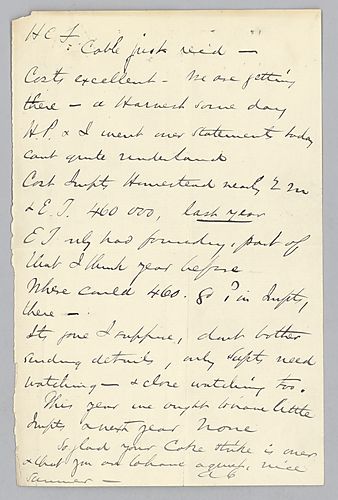 H C F
: Cable just rec'd —
Costs excellent - We are getting
there — a Harvest some day
H.P. & I went over statements today
cant quite understand
Cost Impts Homestead nearly 2 m
& E.T. 460 000, last year
E T only had foundry, part of
that I think year before
Where could 460. go? in Impts,
there —.
Its gone I suppose, dont bother
sending details, only Supts need
watching — & close watching too.
This year we ought to have little
Impts & next year None
So glad your Coke strike is over
& that you are to have a nice
summer —